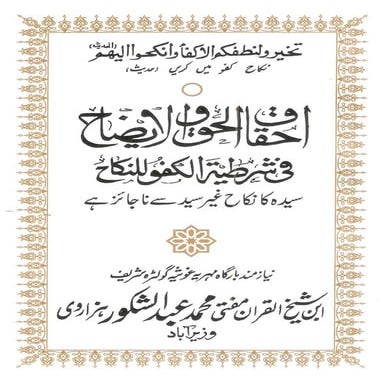 تخیروا لنطفکم الاکفاء وانکحوا الیھم (الحدیث)
نکاح کفو میں کریں (حدیث)
احقاق الحق والایضاح
فی شرطیۃ الکفو للنکاح
سیدہ کا نکاح غیر سید سے ناجائز ہے
نیاز مند بارگاہ مہریہ غوثیہ گولڑہ شریف
ابن شیخ القرآن مفتی محمد عبد الشکور ہزاروی
وزیرآباد